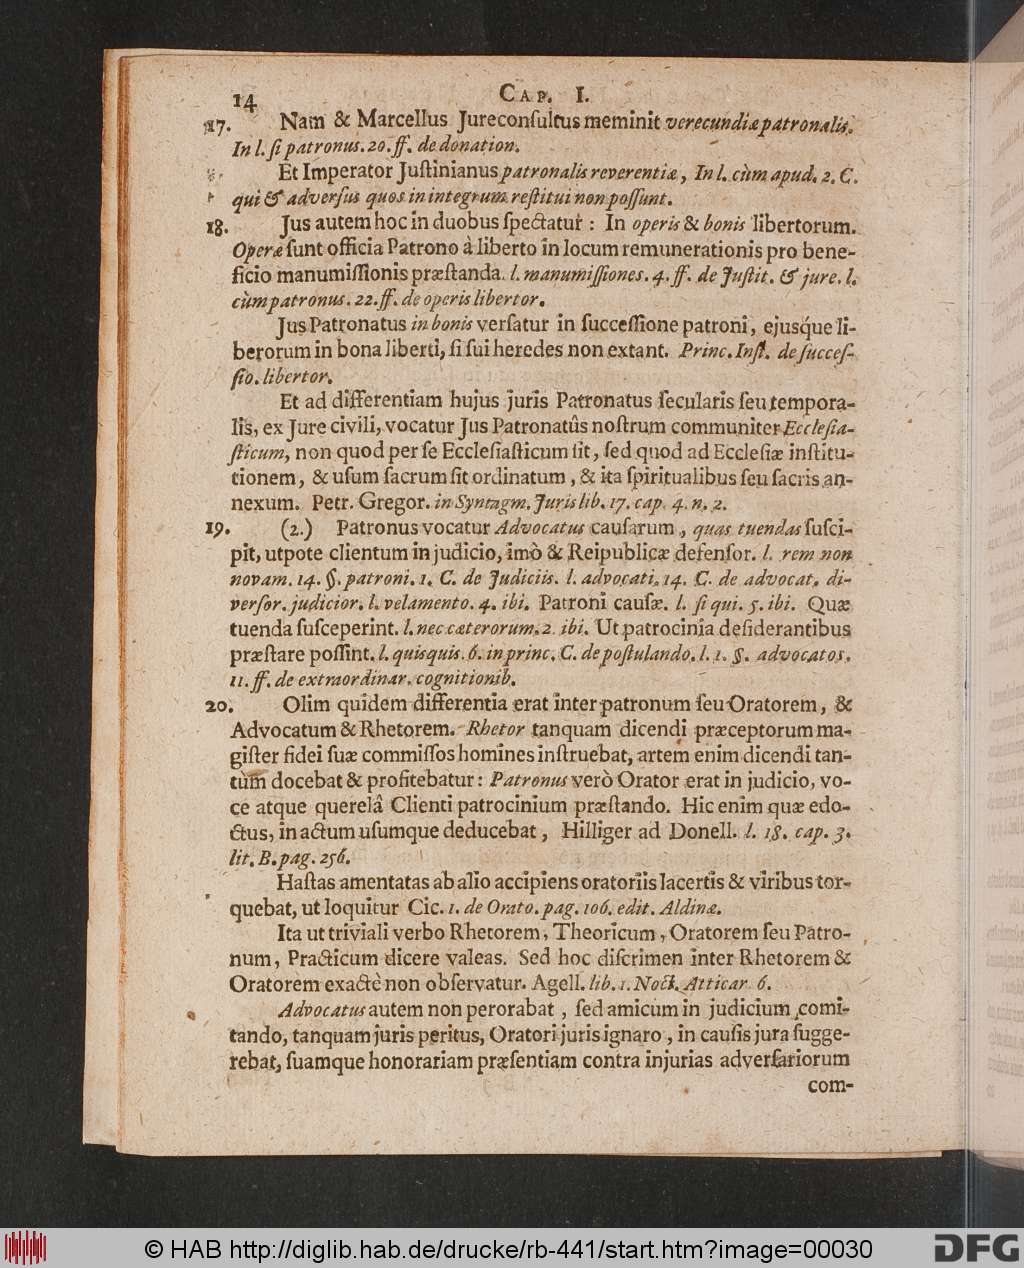 14 CAP. I.
17. Nam & Marcellus Jureconſultus meminit verecundiæ patronalis.
In l. ſi patronus. 20. ff. de donation.
Et Imperator Juſtinianus patronalis reverentiæ, In l. cùm apud. 2. C.
qui & adverſus quos in integrum reſtitui non poſſunt.
18. Jus autem hoc in duobus ſpectatur : In operis & bonis libertorum.
Operæ ſunt officia Patrono à liberto in locum remunerationis pro bene-
ficio manumiſſionis præſtanda. l. manumiſſiones. 4. ff. de Juſtit. & jure. l.
cùm patronus. 22. ff. de operis libertor.
Jus Patronatus in bonis verſatur in ſucceſſione patroni, ejusq́ue li-
berorum in bona liberti, ſi ſui heredes non extant. Princ. Inſt. de ſucceſ-
ſio. libertor.
Et ad differentiam hujus juris Patronatus ſecularis ſeu tempora-
lis, ex Jure civili, vocatur Jus Patronatûs noſtrum communiter Eccleſia-
ſticum, non quod per ſe Eccleſiaſticum ſit, ſed quod ad Eccleſiæ inſtitu-
tionem, & uſum ſacrum ſit ordinatum, & ita ſpiritualibus ſeu ſacris an-
nexum. Petr. Gregor. in Syntagm. Juris lib. 17. cap. 4. n. 2.
19. (2.) Patronus vocatur Advocatus cauſarum, quas tuendas ſuſci-
pit, utpote clientum in judicio, imò & Reipublicæ defenſor. l. rem non
novam. 14. §. patroni. 1. C. de Judiciis. l. advocati. 14. C. de advocat. di-
verſor. judicior. l. velamento. 4. ibi. Patroni cauſæ. l. ſi qui. 5. ibi. Quæ
tuenda ſuſceperint. l. nec cæterorum. 2. ibi. Ut patrocinia deſiderantibus
præſtare poſſint. l. quisquis. 6. in princ. C. de poſtulando. l. 1. §. advocatos.
11. ff. de extraordinar. cognitionib.
20. Olim quidem differentia erat inter patronum ſeu Oratorem, &
Advocatum & Rhetorem. Rhetor tanquam dicendi præceptorum ma-
giſter fidei ſuæ commiſſos homines inſtruebat, artem enim dicendi tan-
tùm docebat & profitebatur : Patronus verò Orator erat in judicio, vo-
ce atque querelâ Clienti patrocinium præſtando. Hic enim quæ edo-
ctus, in actum uſumque deducebat, Hilliger ad Donell. l. 18. cap. 3.
lit. B. pag. 256.
Haſtas amentatas ab alio accipiens oratoriis lacertis & viribus tor-
quebat, ut loquitur Cic. 1. de Orato. pag. 106. edit. Aldinæ.
Ita ut triviali verbo Rhetorem, Theoricum, Oratorem ſeu Patro-
num, Practicum dicere valeas. Sed hoc diſcrimen inter Rhetorem &
Oratorem exactè non obſervatur. Agell. lib. 1. Noct. Atticar. 6.
Advocatus autem non perorabat, ſed amicum in judicium comi-
tando, tanquam juris peritus, Oratori juris ignaro, in cauſis jura ſugge-
rebat, ſuamque honorariam præſentiam contra injurias adverſariorum
com-
© HAB http://diglib.hab.de/drucke/rb-441/start.htm?image=00030
DFG